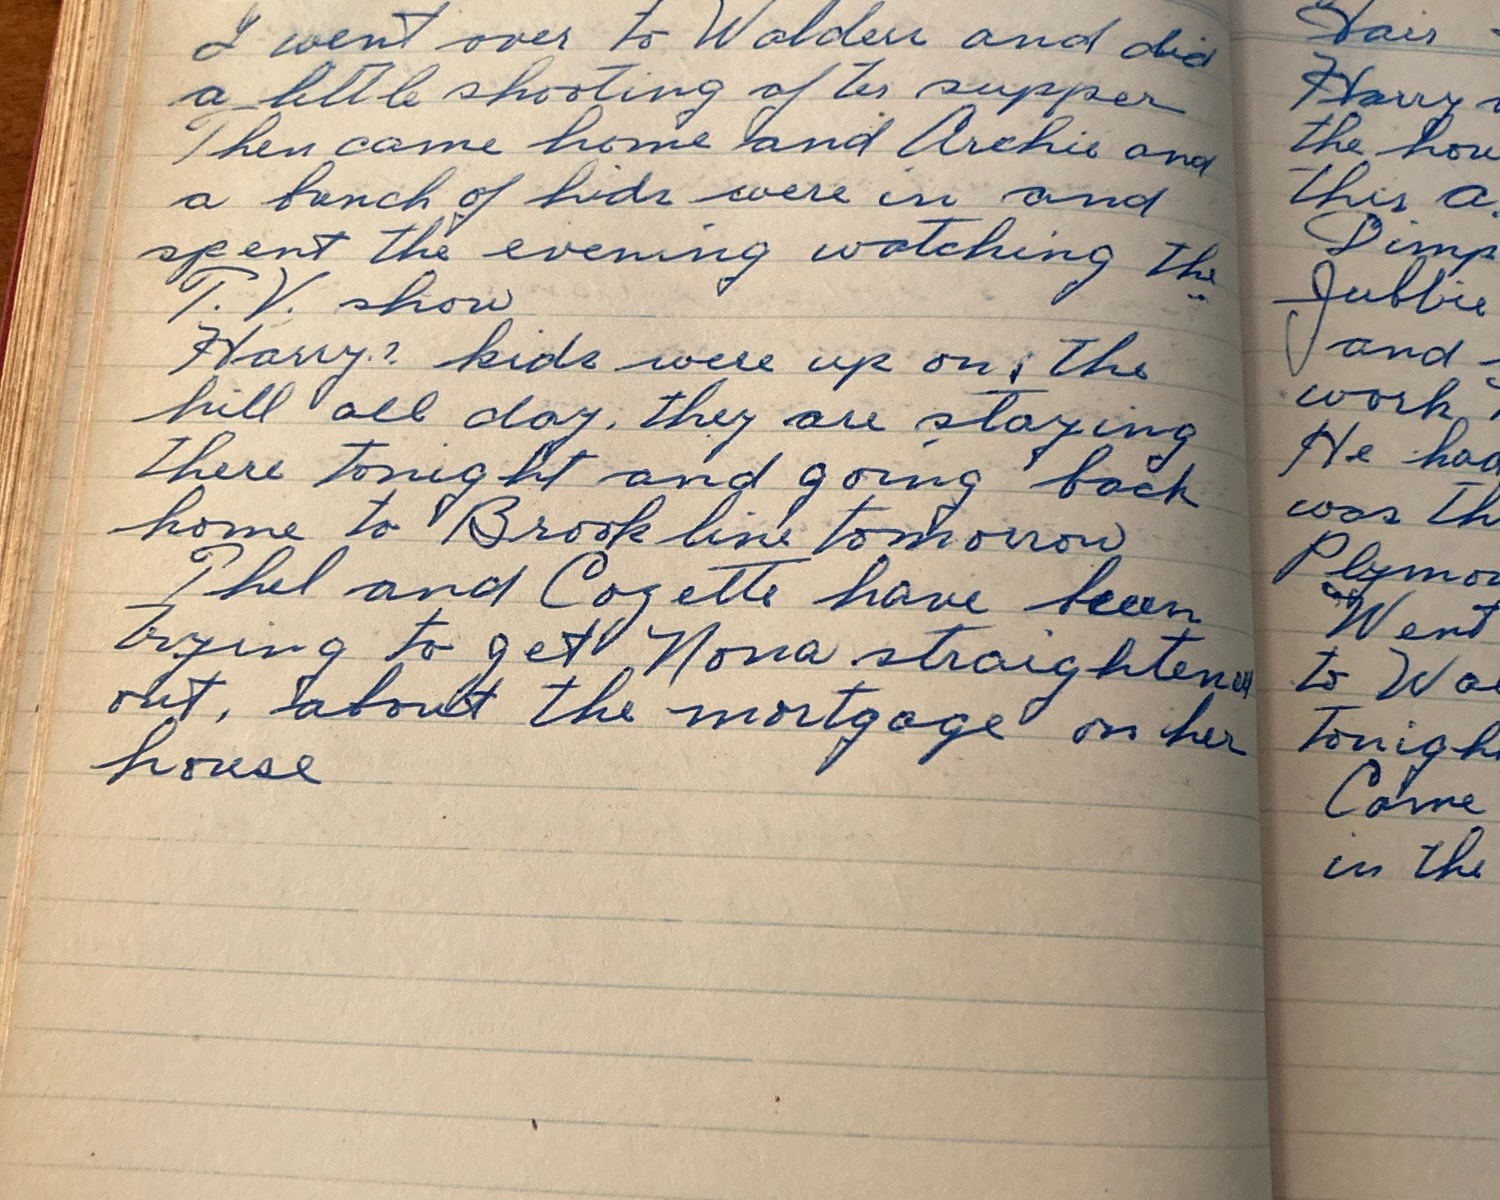 I went over to Walden and did
a little shooting after supper
Then came home and Archie and
a bunch of kids were in and
spent the evening watching the
T.V. show
Harry's kids were up on the
hill all day, they are staying
there tonight and going back
home to Brookline tomorrow
Thel and Cozette have been
trying to get Nona straightened
out, about the mortgage on her
house
Fair
Harry
the hou
this a
Dimp
Jubbie
and
work
He had
was th
Plymou
Went
to Wal
tonigh
Came
in the